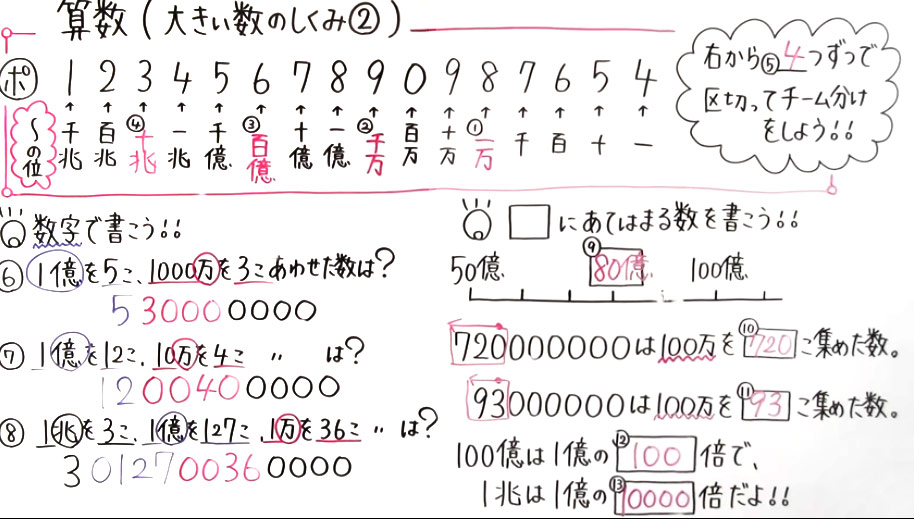 算数(大きい数のしくみ②)
ポ 1 2 3 4 5 6 7 8 9 0 9 8 7 6 5 4
↑ ↑ ↑ ↑ ↑ ↑ ↑ ↑ ↑ ↑ ↑ ↑ ↑ ↑ ↑ ↑
〜の位 千兆 百兆 ④十兆 一兆 千億 ③百億 十億 一億 ②千万 百万 十万 ①一万 千 百 十 一
右から⑤4つずつで
区切ってチーム分け
をしよう!!
数字で書こう!!
⑥ 1億を5こ、1000万を3こあわせた数は?
530000000
⑦ 1億を12こ、10万を4こ 〃 は?
1200400000
⑧ 1兆を3こ、1億を127こ、1万を36こ 〃 は?
3012700360000
□にあてはまる数を書こう!!
50億 ⑨80億 100億
720000000は100万を⑩720こ集めた数。
93000000は100万を⑪93こ集めた数。
100億は1億の⑫100倍で、
1兆は1億の⑬10000倍だよ!!